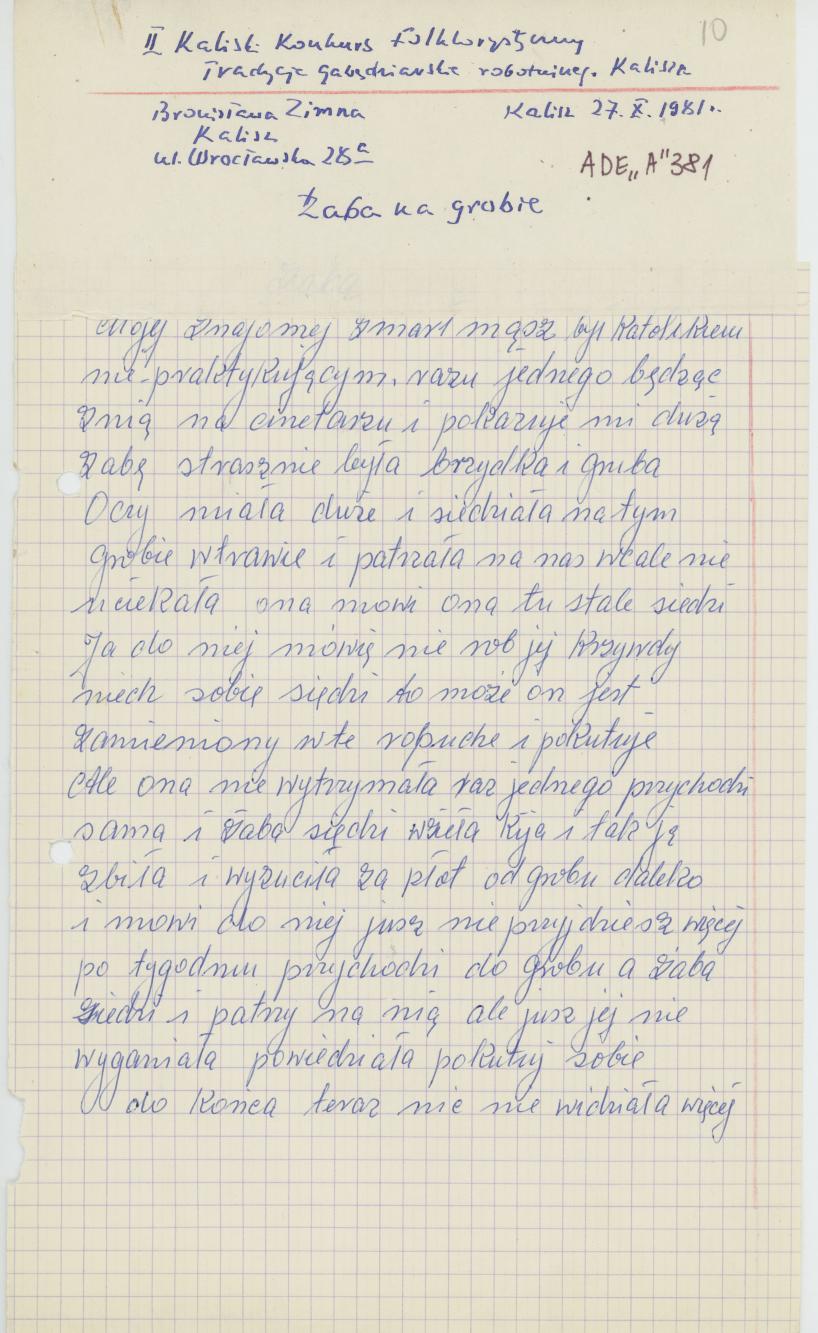 10
II Kaliski Konkurs Folklorystyczny
Tradycje gawędziarskie robotnicz. Kalisza
Bronisława Zimna
Kalisz 27. X. 1981r.
Kalisz
ul. Wrocławska 28a
ADE „A" 381
Żaba na grobie
Mojej znajomej zmarł mąsz był Katolikiem
nie-praktykującym. razu jednego będząc
znią na cmetarzu i pokazuje mi dużą
żabę strasznie była brzydka i gruba
Oczy miała duże i siedziała na tym
grobie wtrawie i patrzała na nas wcale nie
uciekała ona mowi ona tu stale siedzi
Ja do niej mówię nie rob jej Krzywdy
niech sobie siędzi to może on jest
zamieniony wte ropuche i pokutuje
Ale ona nie wytrzymała raz jednego przychodzi
sama i żaba siędzi wzieła Kija i tak ją
zbiła i wyżuciła za płot od grobu daleko
i mowi do niej jusz nie przyjdziesz więcej
po tygodniu przychodzi do grobu a żaba
siedzi i patrzy na nią ale jusz jej nie
wyganiała powiedziała pokutuj sobie
do Końca teraz nic nie widziała więcej